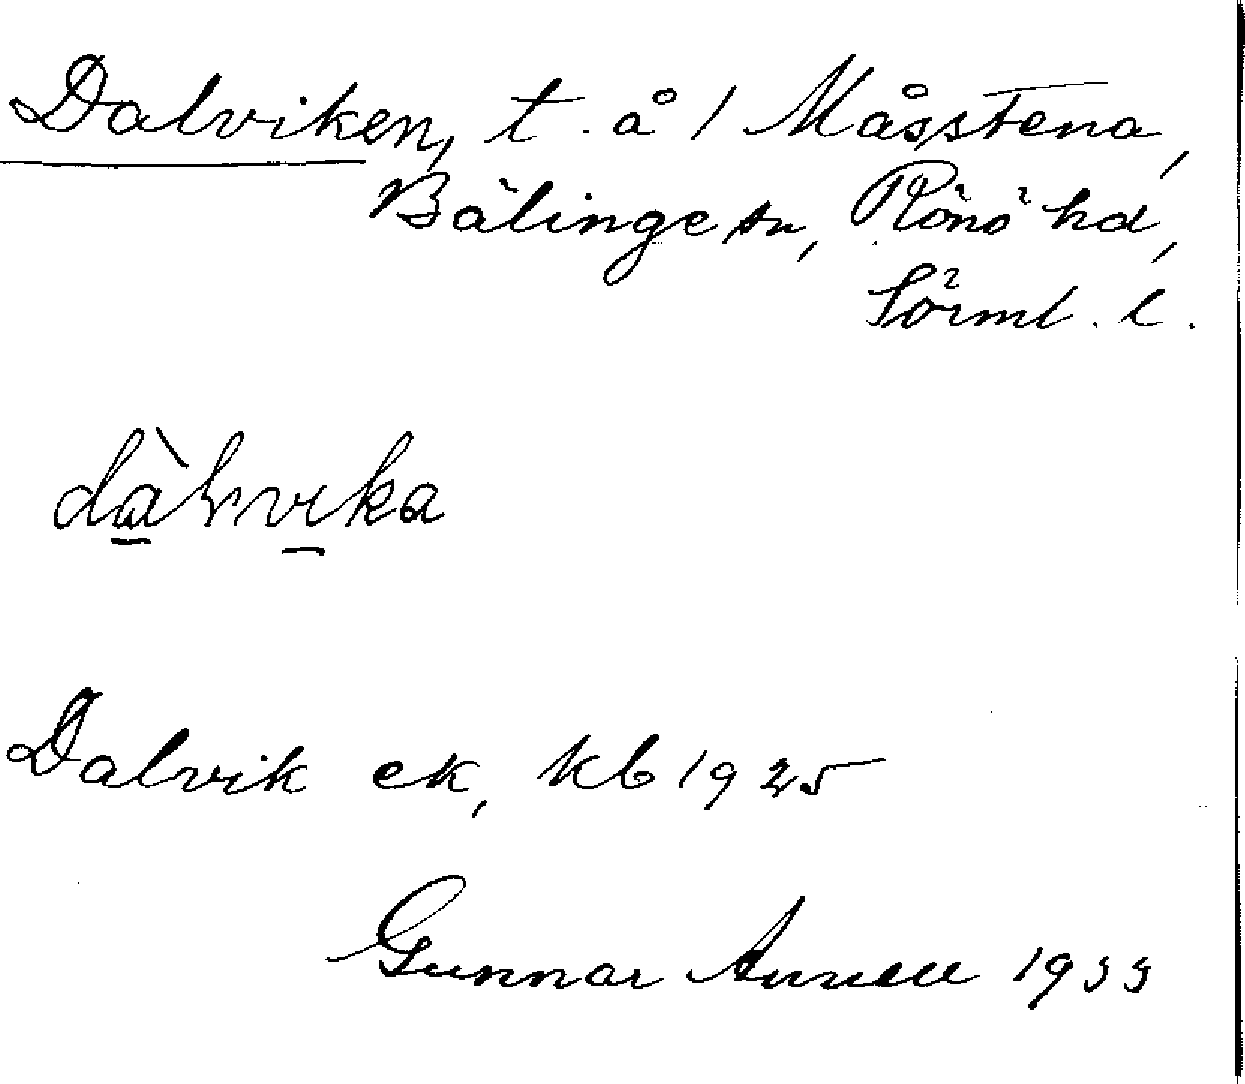 Dalviken, t. å / Måsstena,
Bälinge sn, Rönö hd,
Sörml. l.
dàlvika
Dalvik ek, kb 1925
Gunnar Annell 1933